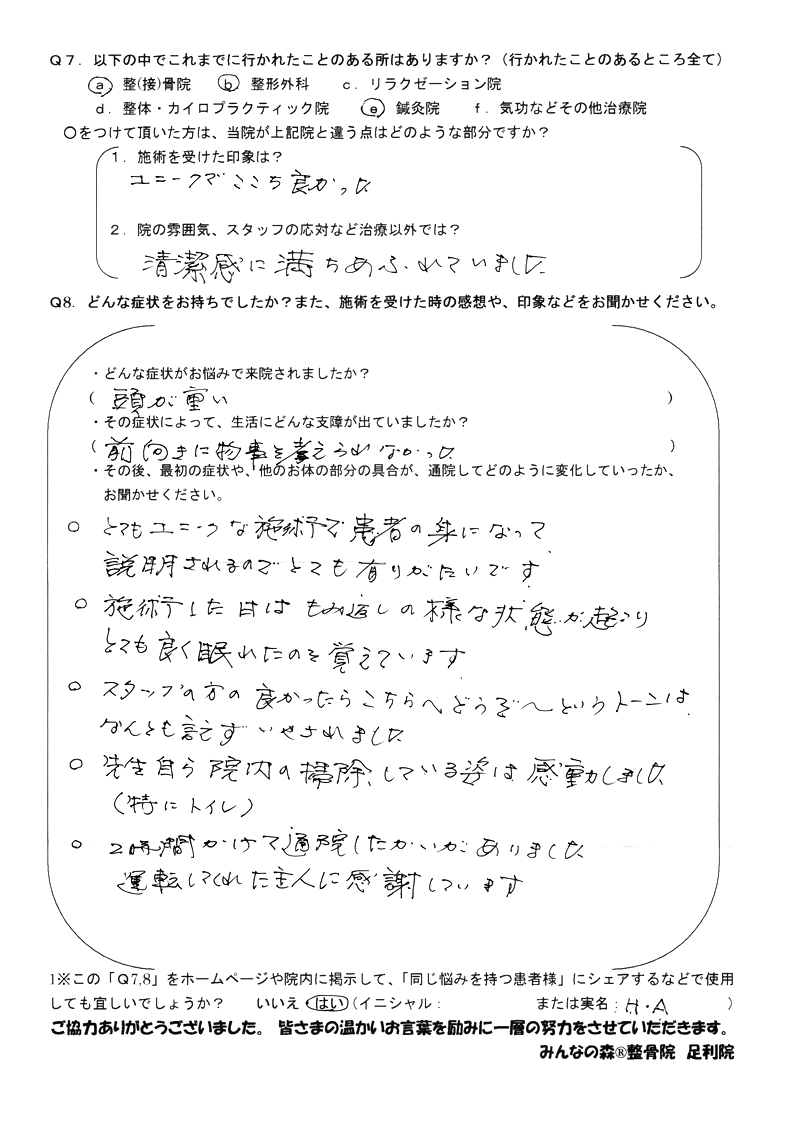 Q7．以下の中でこれまでに行かれたことのある所はありますか？（行かれたことのあるところ全て）
ⓐ 整(接)骨院 ⓑ 整形外科 c．リラクゼーション院
d．整体・カイロプラクティック院 ⓔ 鍼灸院 f．気功などその他治療院
〇をつけて頂いた方は、当院が上記院と違う点はどのような部分ですか？
1．施術を受けた印象は？
ユニークでここち良かった
2．院の雰囲気、スタッフの応対など治療以外では？
清潔感に満ちあふれていました
Q8．どんな症状をお持ちでしたか？また、施術を受けた時の感想や、印象などをお聞かせください。
・どんな症状がお悩みで来院されましたか？
（頭が重い）
・その症状によって、生活にどんな支障が出ていましたか？
（前向きに物事を考えられなかった）
・その後、最初の症状や、他のお体の部分の具合が、通院してどのように変化していったか、
お聞かせください。
○ とてもユニークな施術で患者の身になって
説明されるのでとても有りがたいです
○ 施術した日はもみ返しの様な状態が起こり
とても良く眠れたのを覚えています
○ スタッフの方の良かったらこちらへどうぞ〜というトーンは
なんとも言えずいやされました
○ 先生自ら院内の掃除、している姿は感動しました
（特にトイレ）
○ 2時間かけて通院したかいがありました
運転してくれた主人に感謝しています
1※この「Q7,8」をホームページや院内に掲示して、「同じ悩みを持つ患者様」にシェアするなどで使用
しても宜しいでしょうか？ いいえ・はい（イニシャル： または実名：H・A ）
ご協力ありがとうございました。 皆さまの温かいお言葉を励みに一層の努力をさせていただきます。
みんなの森®整骨院 足利院